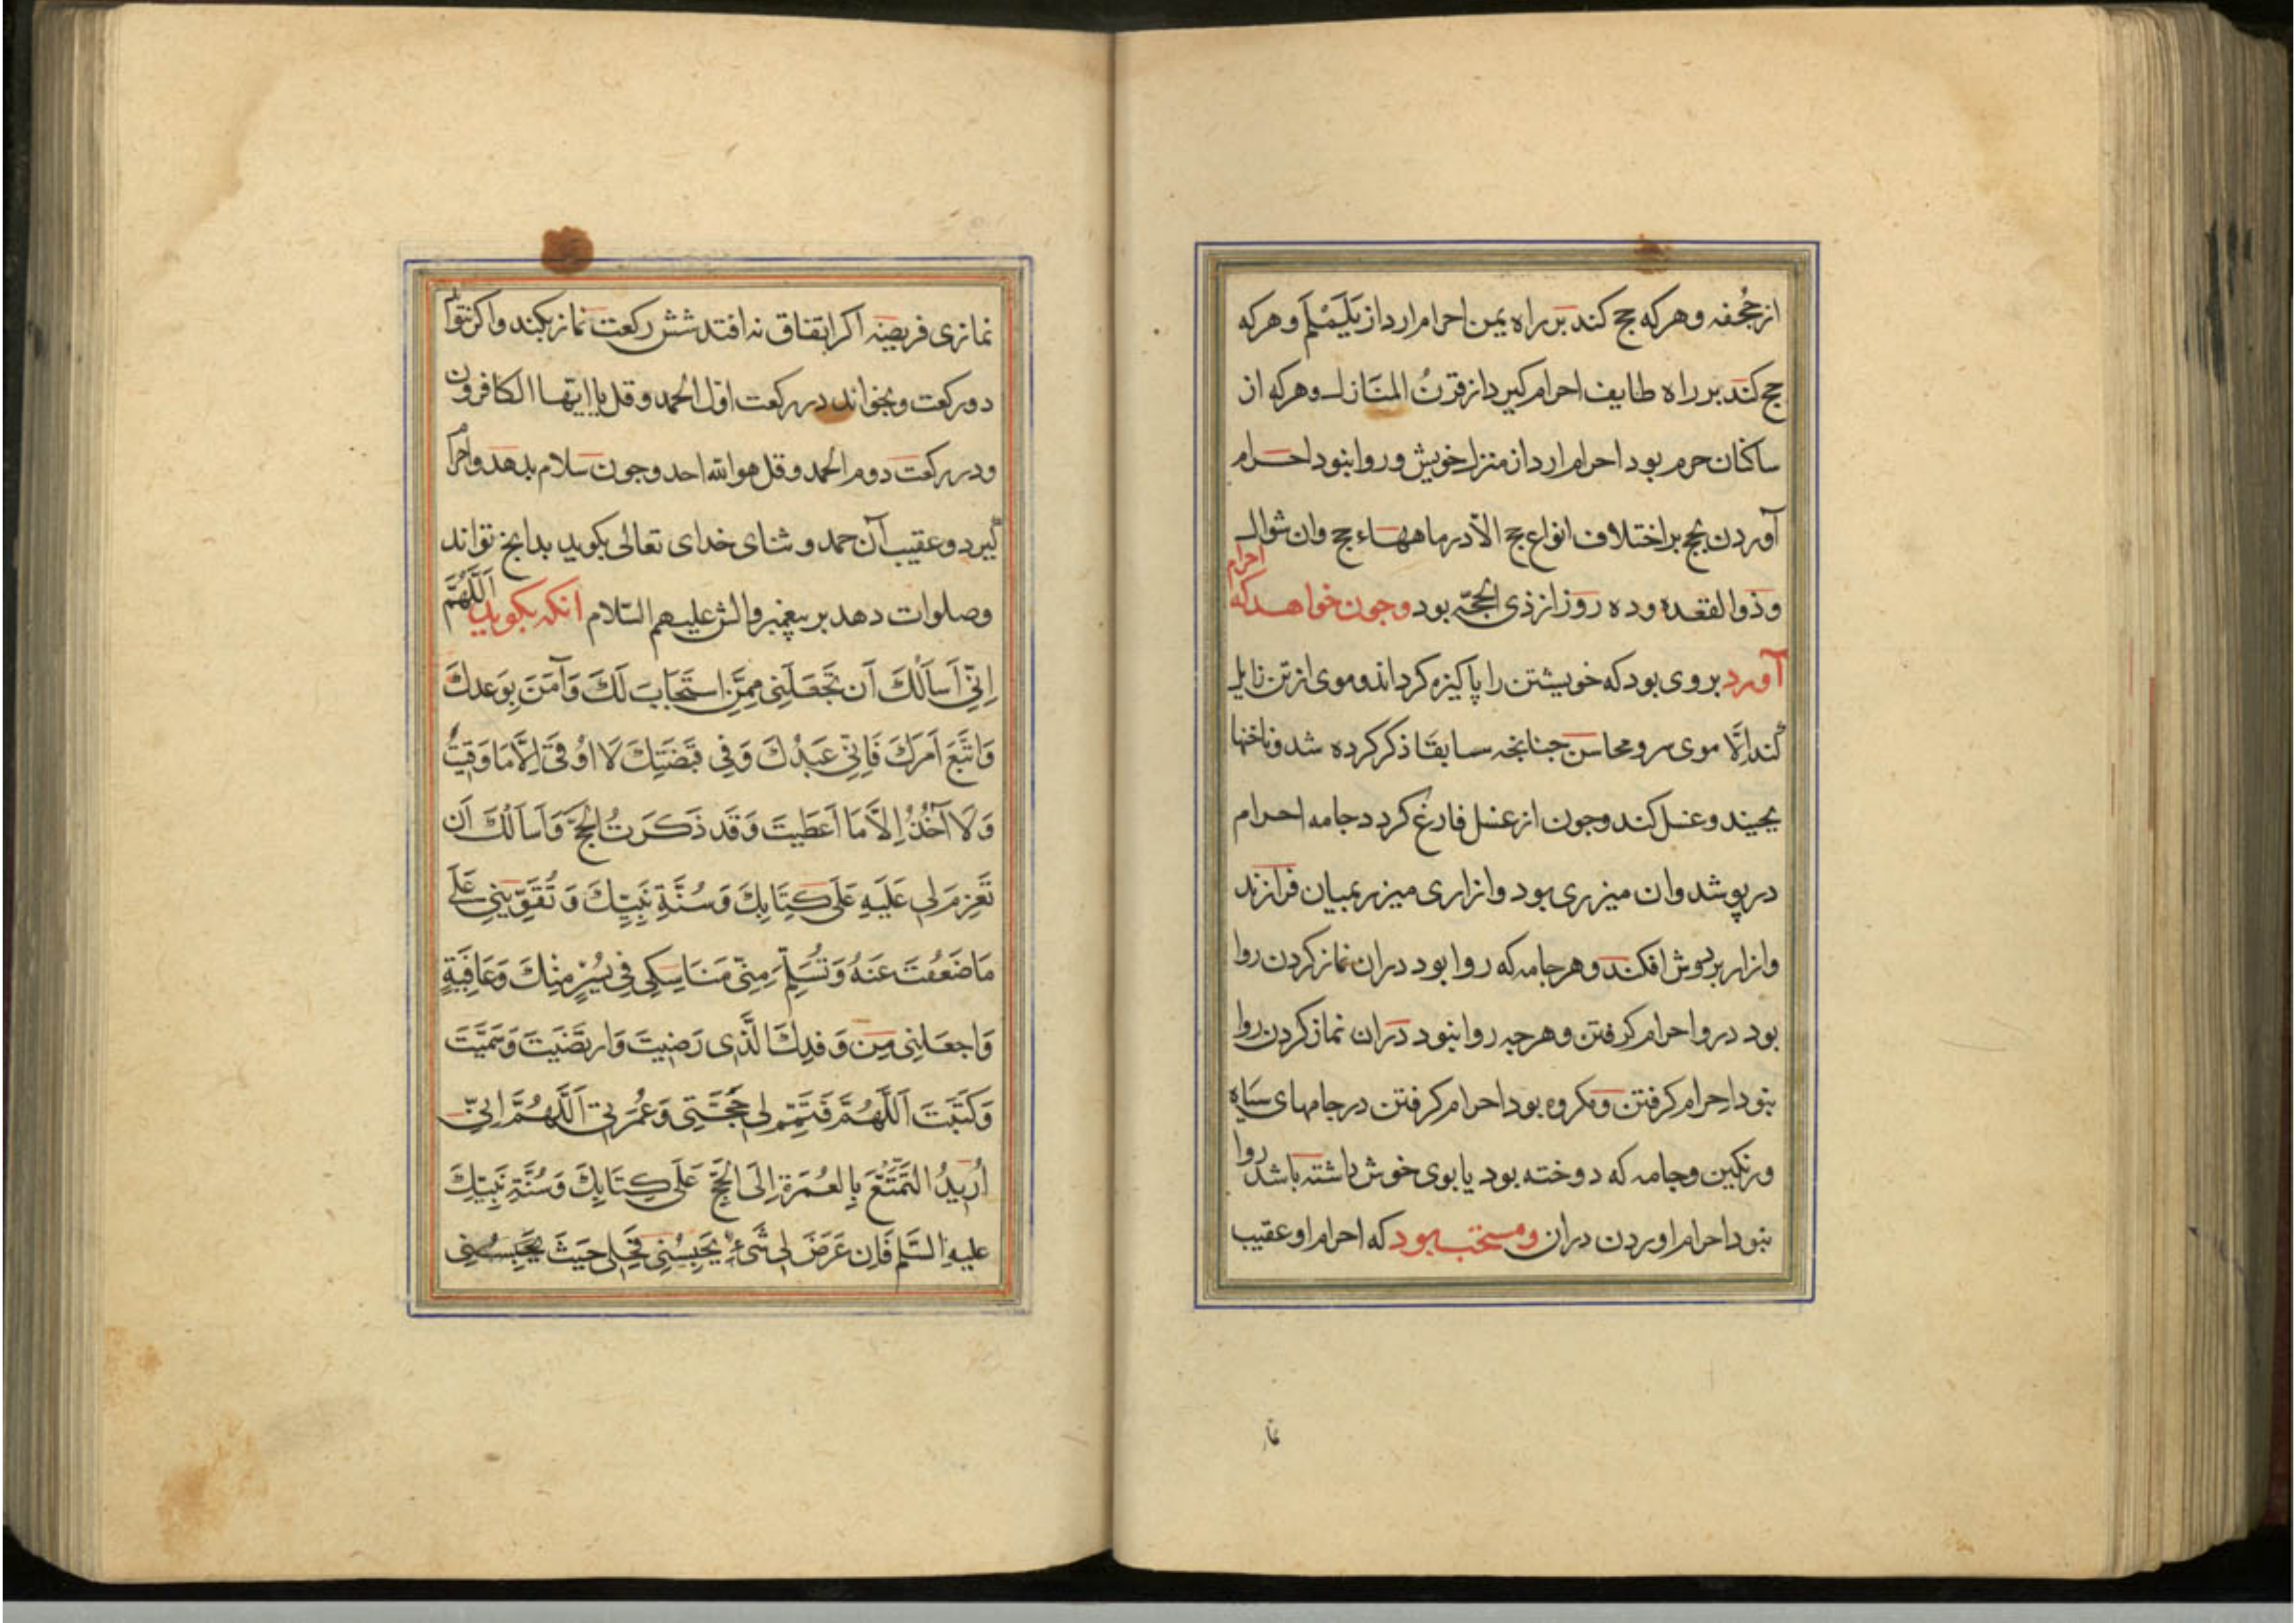 از جُحفه وهرکه حج کند بر راه یمن احرام ارد از یَلَمْلَم وهرکه
حج کند بر راه طایف احرام کیرد از قرنُ المنَازل وهرکه از
ساکنان حرم بود احرام ارد از منزل خویش و روا نبود احرام
آوردن بحج بر اختلاف انواع حج الّا در ماههاء حج وان شوال
وذوالقعده و ده روز از ذی الحجّه بود وجون خواهد که احرام
آورد بروی بود که خویشتن را پاکیزه کرداند وموی از تن زایل
کند اِلَّا موی سر و محاسن جنانجه سابقا ذکر کرده شد وناخنها
بجیند وغسل کند وجون از غسل فارغ کردد جامه احرام
درپوشد وان میزری بود وازاری میزر بمیان فرازند
وازار بردوش افکند وهر جامه که روا بود دران نماز کردن روا
بود درو احرام کرفتن وهرجه روا نبود دران نماز کردن روا
نبود احرام کرفتن ومکروه بود احرام کرفتن در جامهای سیاه
ورنکین وجامه که دوخته بود یا بوی خوش داشته باشد روا
نبود احرام اوردن دران ومستحب بود که احرام او عقیب
نماز
نمازی فریضه اکر اتفاق نه افتد شش رکعت نماز بکند واکر نتواند
دو رکعت وبخواند در رکعت اوّل الحمد وقل یا ایّها الکافرون
ودر رکعت دوم الحمد وقل هو الله احد وجون سلام بدهد واحرام
کیرد وعقیب آن حمد و ثنای خدای تعالی بکوید بدانج تواند
وصلوات دهد بر پیغمبر والش علیهم السّلام آنکه بکوید اَللَّهُمَّ
اِنّی اَساَلُكَ اَن تَجعَلَنِی مِمَّنِ استَجَابَ لَكَ وَآمَنَ بِوَعدِكَ
وَاتَّبَعَ اَمرَكَ فَاِنّی عَبدُكَ وَفِی قَبضَتِكَ لَا اُوقٰی اِلَّا مَا وَقَیتَ
وَلَا آخُذُ اِلَّا مَا اَعطَیتَ وَقَد ذَکَرتُ الحَجَّ وَاَساَلُكَ اَن
تَعزِمَ لِی عَلَیهِ عَلٰی کِتَابِكَ وَسُنَّةِ نَبِیِّكَ وَ تُقَوِّیَنِی عَلٰی
مَا ضَعُفتُ عَنهُ وَتُسَلِّمَ مِنِّی مَنَاسِکِی فِی یُسرٍ مِنكَ وَعَافِیَةٍ
وَاجعَلنِی مِن وَفدِكَ الَّذِی رَضِیتَ وَارتَضَیتَ وَسَمَّیتَ
وَکَتَبتَ اَللّٰهُمَّ فَتَمِّم لِی حَجَّتِی وَعُمرَتِی اَللّٰهُمَّ اِنّی
اُرِیدُ التَّمَتُّعَ بِالعُمرَةِ اِلَی الحَجِّ عَلٰی کِتَابِكَ وَسُنَّةِ نَبِیِّكَ
علیهِ السَّلم فَاِن عَرَضَ لِی شَیءٌ یَحبِسُنِی فَحُلَّنِی حَیثُ یَحبِسُنِی